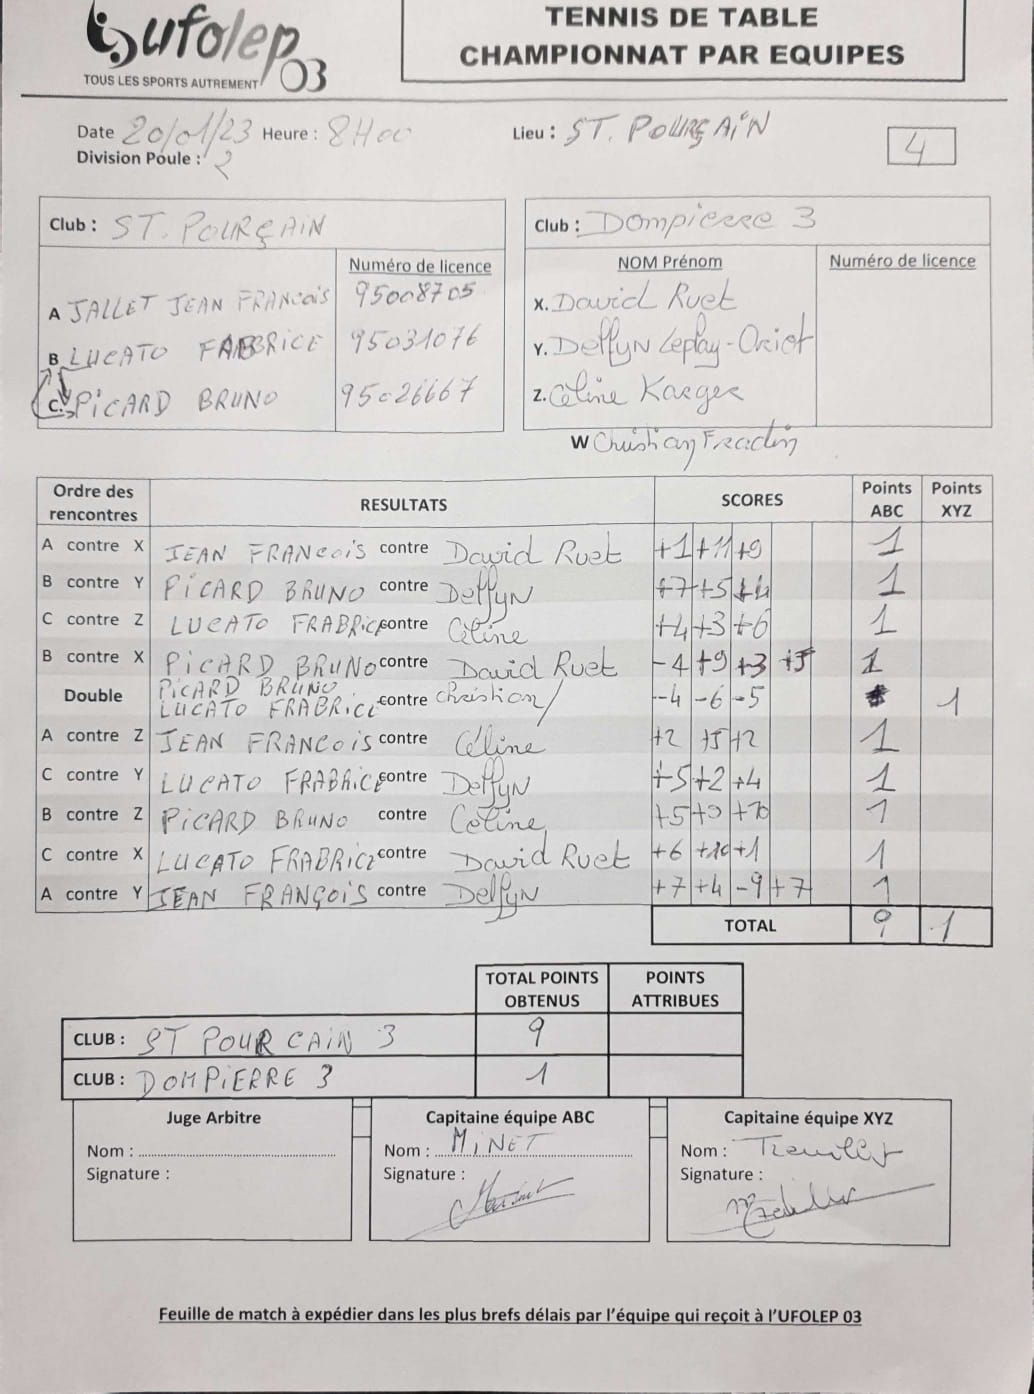 ufolep 03
TOUS LES SPORTS AUTREMENT
TENNIS DE TABLE
CHAMPIONNAT PAR EQUIPES
Date 20/01/23 Heure : 8H00 Lieu : ST. POURÇAIN
Division Poule : 2
4
Club : ST. POURÇAIN
Numéro de licence
A JALLET JEAN FRANCOIS 95008705
B LUCATO FABRICE 95031076
C. PICARD BRUNO 95026667
Club : Dompierre 3
NOM Prénom Numéro de licence
X. David Ruet
Y. Delfyn Leplay-Oriot
Z. Céline Karger
W Christian Fradin
Ordre des rencontres RESULTATS SCORES Points ABC Points XYZ
A contre X JEAN FRANCOIS contre David Ruet +1 +11 +9 1
B contre Y PICARD BRUNO contre Delfyn +7 +5 +4 1
C contre Z LUCATO FRABRICE contre Céline +4 +3 +6 1
B contre X PICARD BRUNO contre David Ruet -4 +9 +3 +5 1
Double PICARD BRUNO
LUCATO FRABRICE contre Christian/ -4 -6 -5 1
A contre Z JEAN FRANCOIS contre Céline +2 +5 +2 1
C contre Y LUCATO FRABRICE contre Delfyn +5 +2 +4 1
B contre Z PICARD BRUNO contre Céline +5 +9 +10 1
C contre X LUCATO FRABRICE contre David Ruet +6 +10 +1 1
A contre Y JEAN FRANÇOIS contre Delfyn +7 +4 -9 +7 1
TOTAL 9 1
TOTAL POINTS OBTENUS POINTS ATTRIBUES
CLUB : ST POURCAIN 3 9
CLUB : DOMPIERRE 3 1
Juge Arbitre
Nom :
Signature :
Capitaine équipe ABC
Nom : MINET
Signature :
Capitaine équipe XYZ
Nom :
Signature :
Feuille de match à expédier dans les plus brefs délais par l'équipe qui reçoit à l'UFOLEP 03